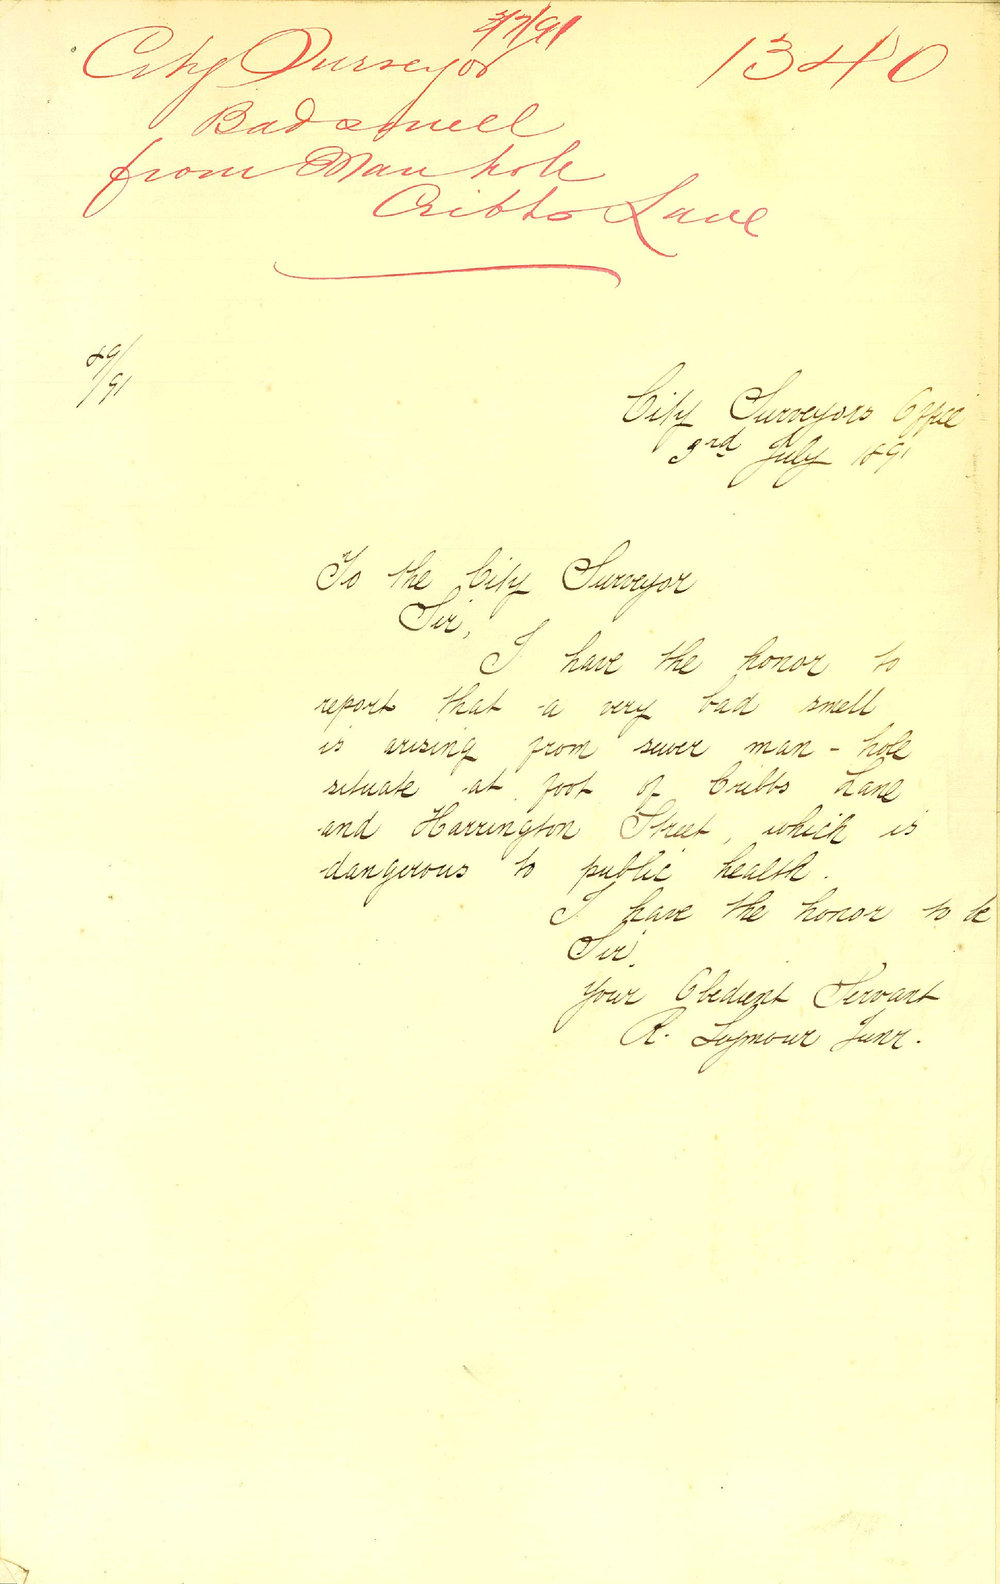 3/7/91
City Surveyor 1340
Bad smell
from Man hole
Cribbs Lane
89/91
City Surveyors Office
3rd July 1891
To the City Surveyor
Sir,
I have the honor to
report that a very bad smell
is arising from sewer man-hole
situate at foot of Cribbs Lane
and Harrington Street, which is
dangerous to public health.
I have the honor to be
Sir,
Your Obedient Servant
R. Seymour Junr.